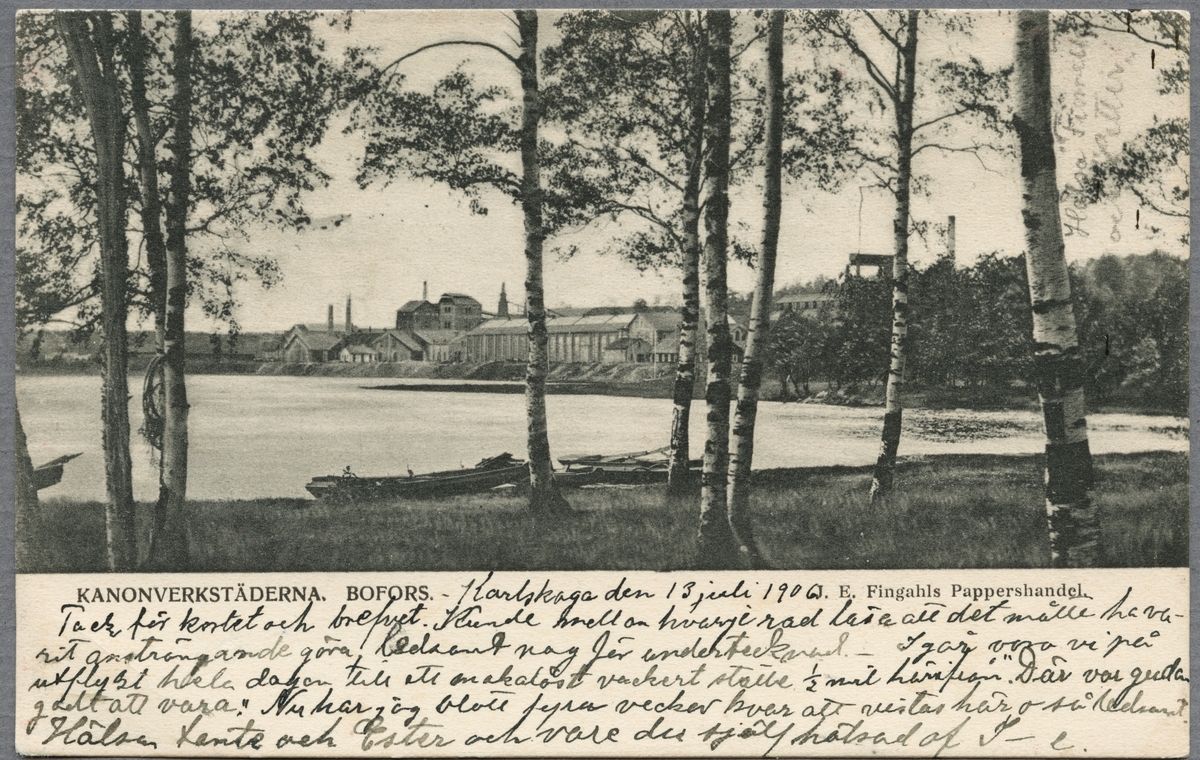 KANONVERKSTÄDERNA. BOFORS. - Karlskoga den 13 juli 1906. J. E. Fingahls Pappershandel.
Tack för kortet och brefvet. Kunde mellan hvarje rad läsa att det måtte ha va-
rit ansträngande göra. Ledsamt nog för undertecknad. - Igår voro vi på
utflykt hela dagen till ett makalöst vackert ställe ½ mil härifrån. "Där var gudan
godt att vara." Nu har jag blott fyra veckor kvar att vistas här o så ledsamt.
Hälsa tante och Ester och vare du själf hälsad af I - e.